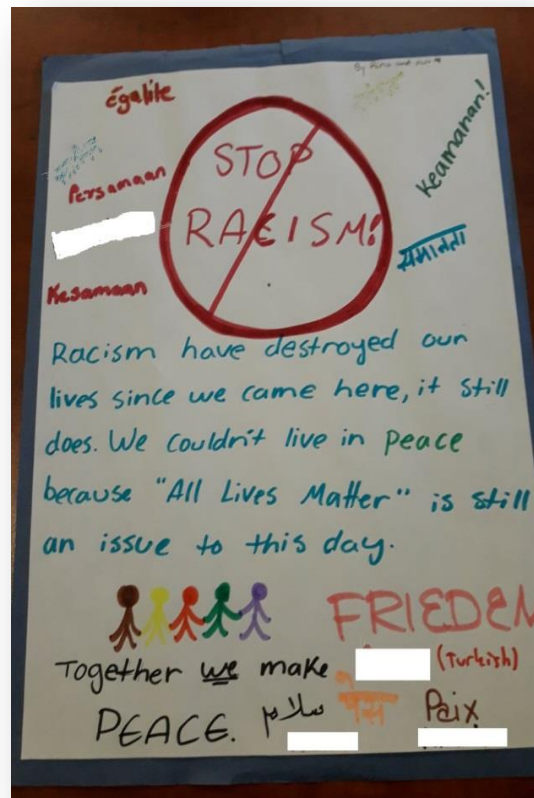 égalité
Persamaan
Kesamaan
STOP
RACISM!
Keamanan!
समानता
Racism have destroyed our
lives since we came here, it still
does. We couldn't live in peace
because "All Lives Matter" is still
an issue to this day.
FRIEDEN
Together we make
(Turkish)
PEACE.
سلام
Paix